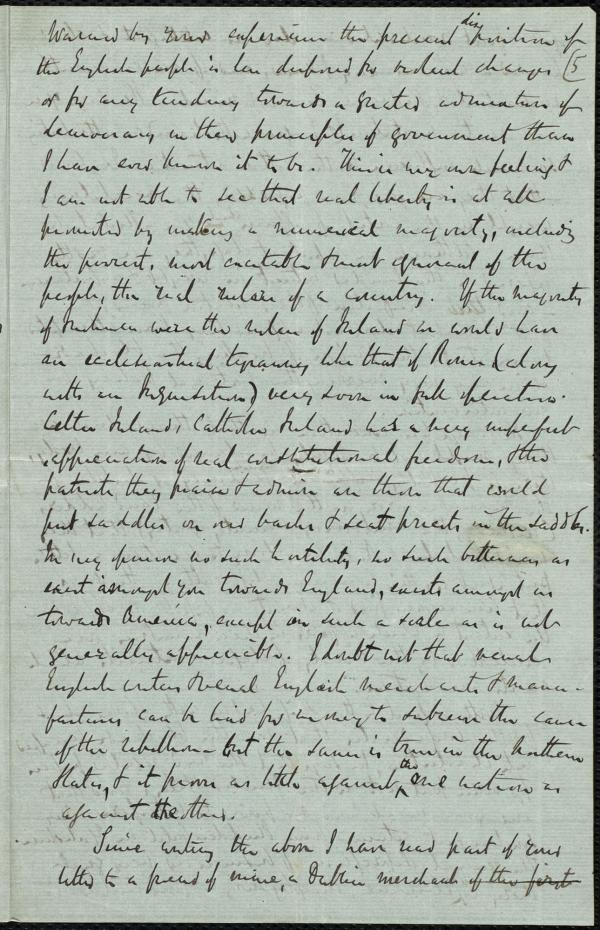 Warned by your experience the present disposition of
the English people is less disposed for violent changes (5
or for any tendency towards a greater admixture of
democracy in their principles of government than
I have ever known it to be. This is my own feeling &
I am not able to see that real liberty is at all
promoted by making a numerical majority, including
the poorest, most excitable & most ignorant of the
people, the real rulers of a country. If the majority
of Irishmen were the rulers of Ireland we would have
an ecclesiastical tyranny like that of Rome (along
with an Inquisition) very soon in full operation.
Celtic Ireland, Catholic Ireland has a very imperfect
appreciation of real constitutional freedom, & the
patriots they praise & admire are those that would
put saddles on our backs & seat priests in the saddles.
In my opinion no such hostility, no such bitterness as
exist amongst you towards England, exists amongst us
towards America, except on such a scale as is not
generally appreciable. I doubt not that venal
English writers & venal English merchants & manu-
facturers can be had for money to subserve the cause
of the rebellion - but the same is true in the Northern
States, & it proves as little against the one nation as
against the other.
Since writing the above I have read part of your
letter to a friend of mine, a Dublin merchant of the first